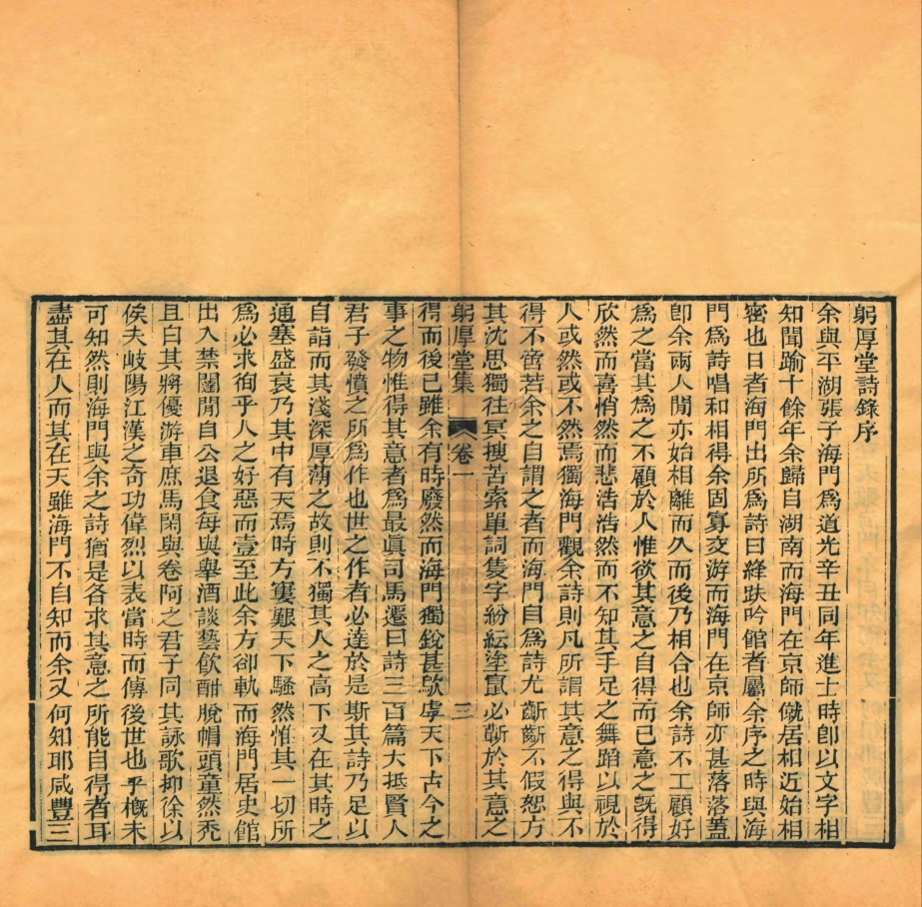 躬厚堂詩錄序
余與平湖張子海門爲道光辛丑同年進士時卽以文字相
知聞踰十餘年余歸自湖南而海門在京師僦居相近始相
密也日者海門出所爲詩曰絳趺吟館者屬余序之時與海
門爲詩唱和相得余固寡交游而海門在京師亦甚落落蓋
卽余兩人閒亦始相離而久而後乃相合也余詩不工顧好
爲之當其爲之不顧於人惟欲其意之自得而已意之旣得
欣然而喜悄然而悲浩浩然而不知其手足之舞蹈以視於
人或然或不然焉獨海門觀余詩則凡所謂其意之得與不
得不啻若余之自謂之者而海門自爲詩尤齗齗不假恕方
其沈思獨往冥搜苦索單詞隻字紛紜塗竄必蘄於其意之
躬厚堂集 卷一 三
得而後已雖余有時廢然而海門獨銳甚歟虖天下古今之
事之物惟得其意者爲最眞司馬遷曰詩三百篇大抵賢人
君子發憤之所爲作也世之作者必達於是斯其詩乃足以
自詣而其淺深厚薄之故則不獨其人之高下又在其時之
通塞盛衰乃其中有天焉時方寠艱天下騷然惟其一切所
爲必求徇乎人之好惡而壹至此余方卻軌而海門居史館
出入禁闥閒自公退食每與舉酒談藝飮酣脫帽頭童然禿
且白其將優游車庶馬閑與卷阿之君子同其詠歌抑徐以
俟夫岐陽江漢之奇功偉烈以表當時而傳後世也乎槪未
可知然則海門與余之詩猶是各求其意之所能自得者耳
盡其在人而其在天雖海門不自知而余又何知耶咸豐三